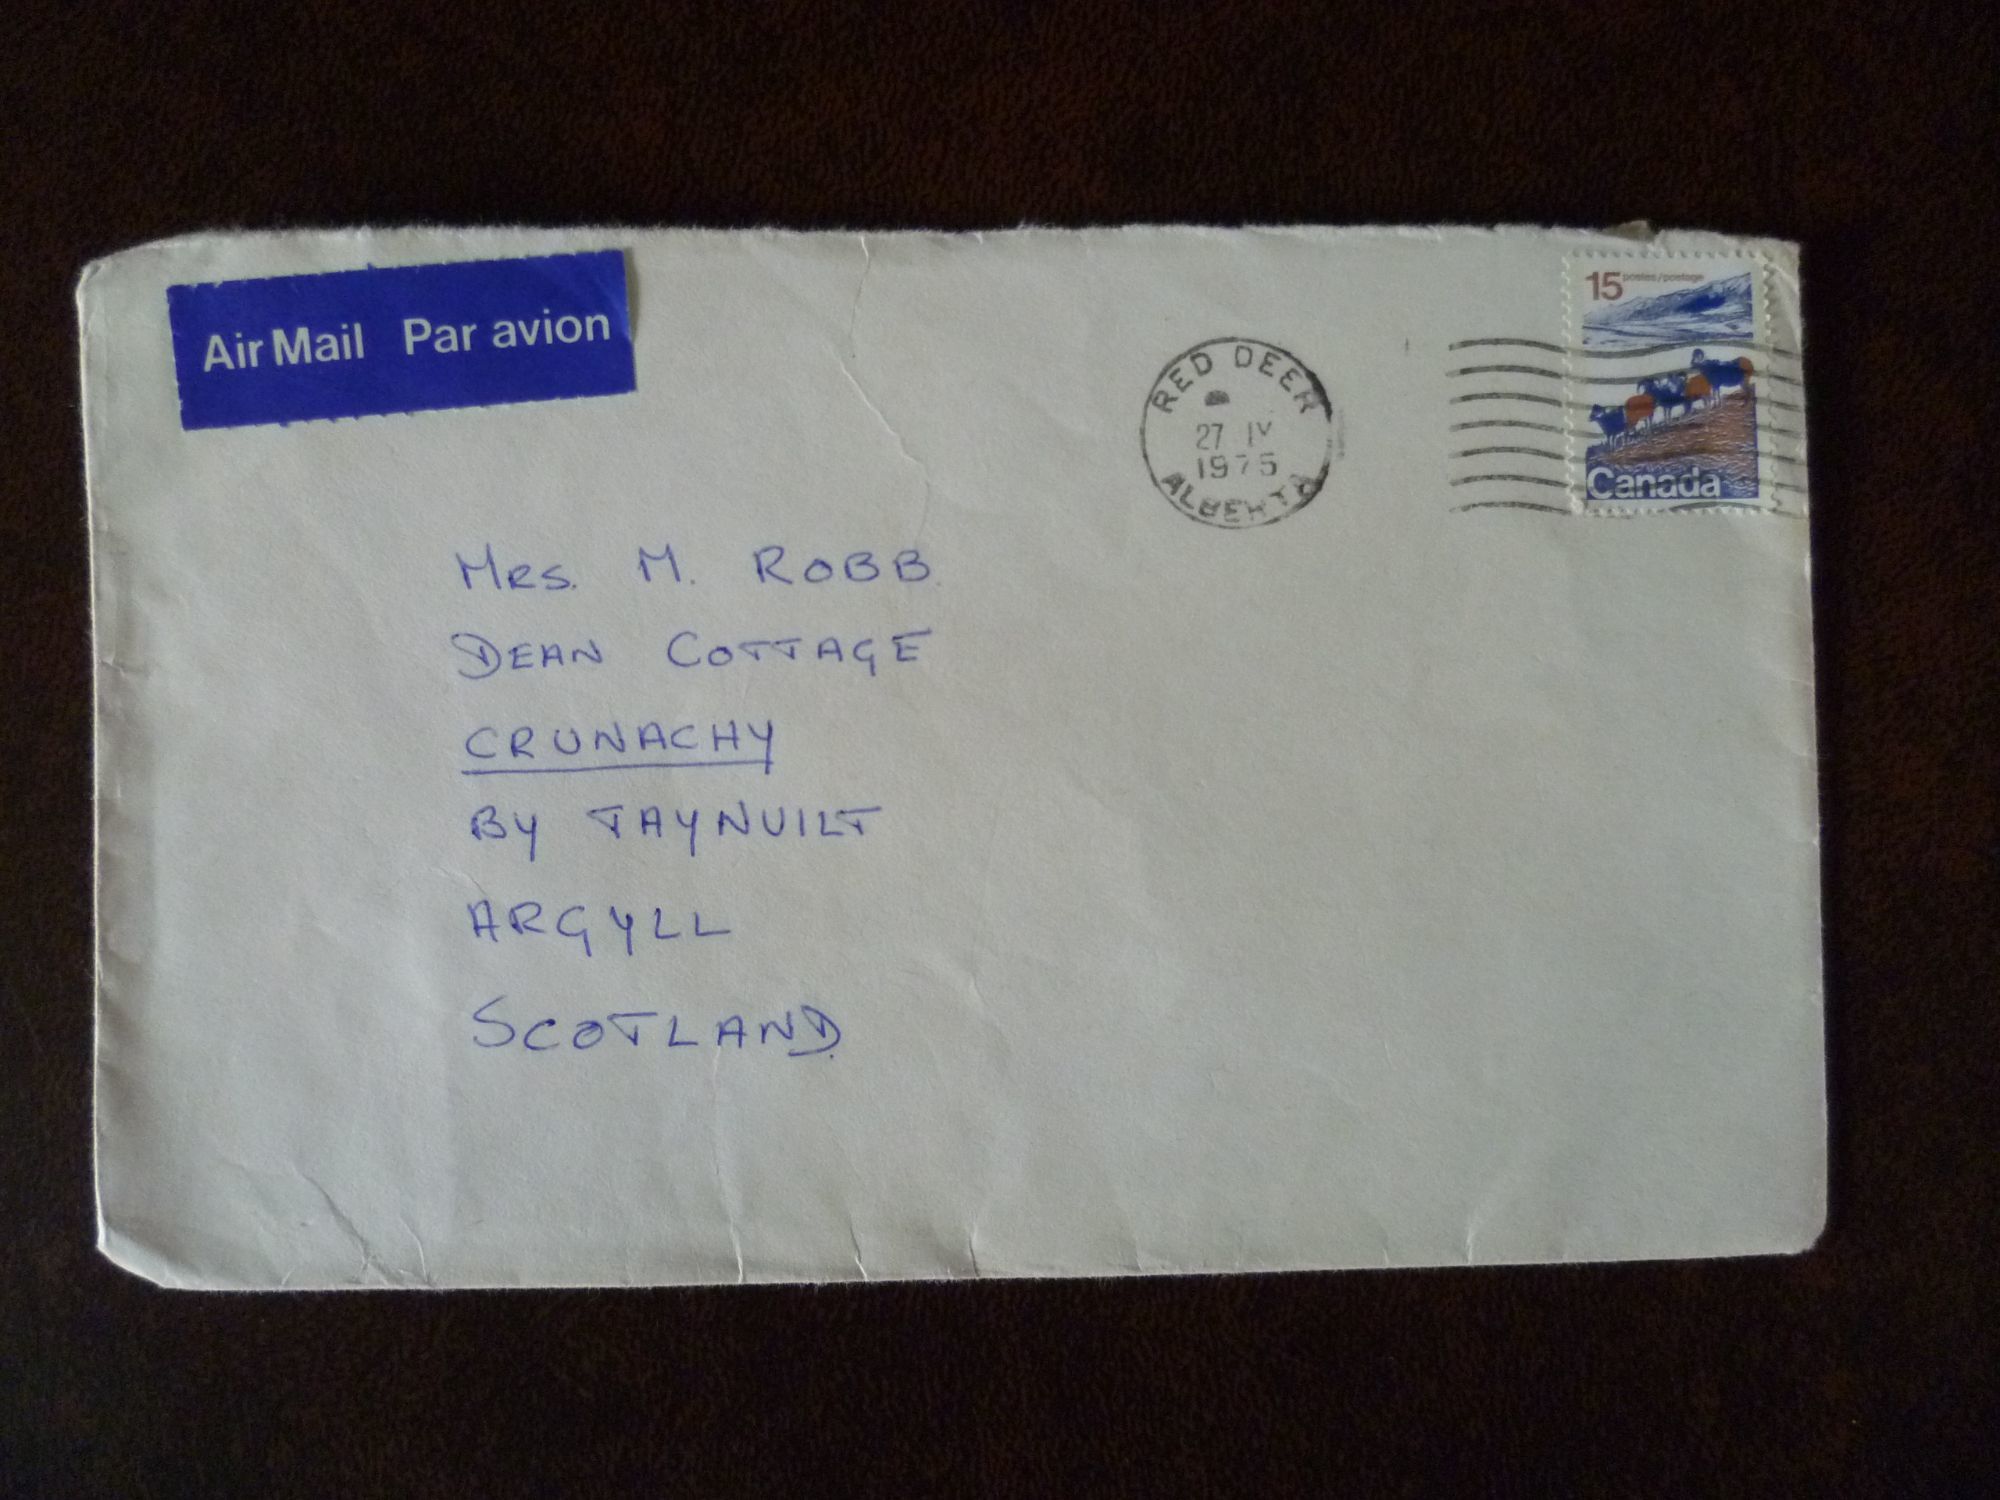 Air Mail Par avion
RED DEER
27 IV
1975
ALBERTA
15 postes/postage
Canada
Mrs. M. ROBB.
DEAN COTTAGE
CRUNACHY
BY TAYNUILT
ARGYLL
SCOTLAND.